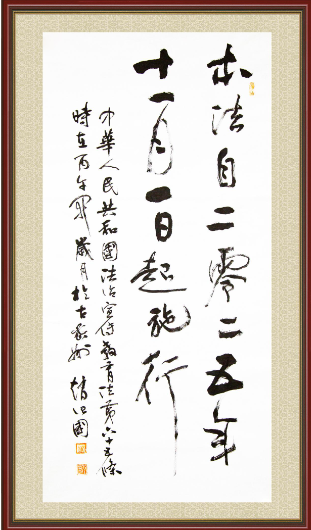 本法自二零二五年
十一月一日起施行
中華人民共和國法治宣傳教育法第六十五條
時在丙午歲月於古國